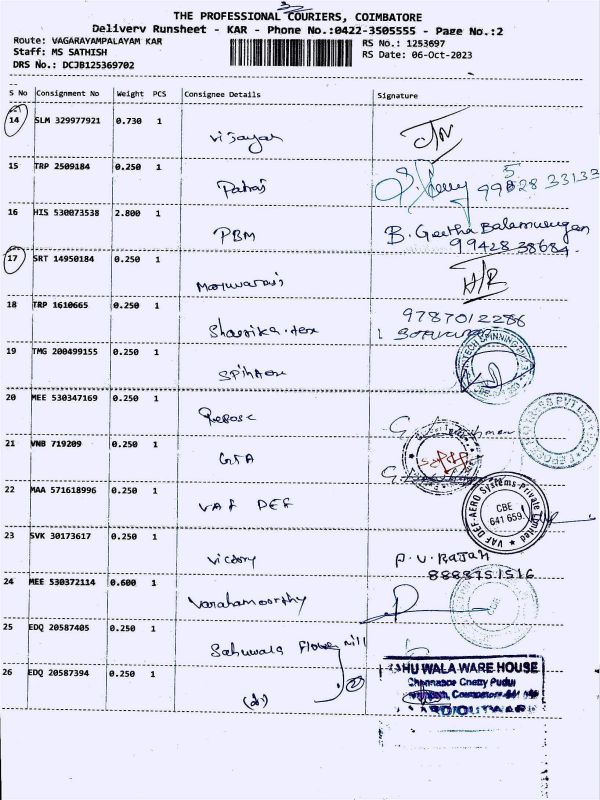 THE PROFESSIONAL COURIERS, COIMBATORE
Delivery Runsheet - KAR - Phone No.:0422-3505555 - Page No.:2
Route: VAGARAYAMPALAYAM KAR
RS No.: 1253697
Staff: MS SATHISH
RS Date: 06-Oct-2023
DRS No.: DCJB125369702
S No Consignment No Weight PCS Consignee Details Signature
14 SLM 329977921 0.730 1
Vijayan
15 TRP 2509184 0.250 1
99828 33133
16 HIS 530073538 2.800 1
PBM
B. Geetha Balamurugan
99428 38684
17 SRT 14950184 0.250 1
H/R
18 TRP 1610665 0.250 1
9787012286
19 TMG 200499155 0.250 1
20 MEE 530347169 0.250 1
Repose
21 VNB 719209 0.250 1
GTA
22 MAA 571618996 0.250 1
VAF DEF
VAF DEF-AERO Systems Private Limited
CBE
641 659.
23 SVK 30173617 0.250 1
Victory
P. V. RAJAN
8883751516
24 MEE 530372114 0.600 1
Varahamoorthy
25 EDQ 20587405 0.250 1
Sahuwala Flour mill
26 EDQ 20587394 0.250 1
(2)
HUWALA WARE HOUSE
Chetty Pudur